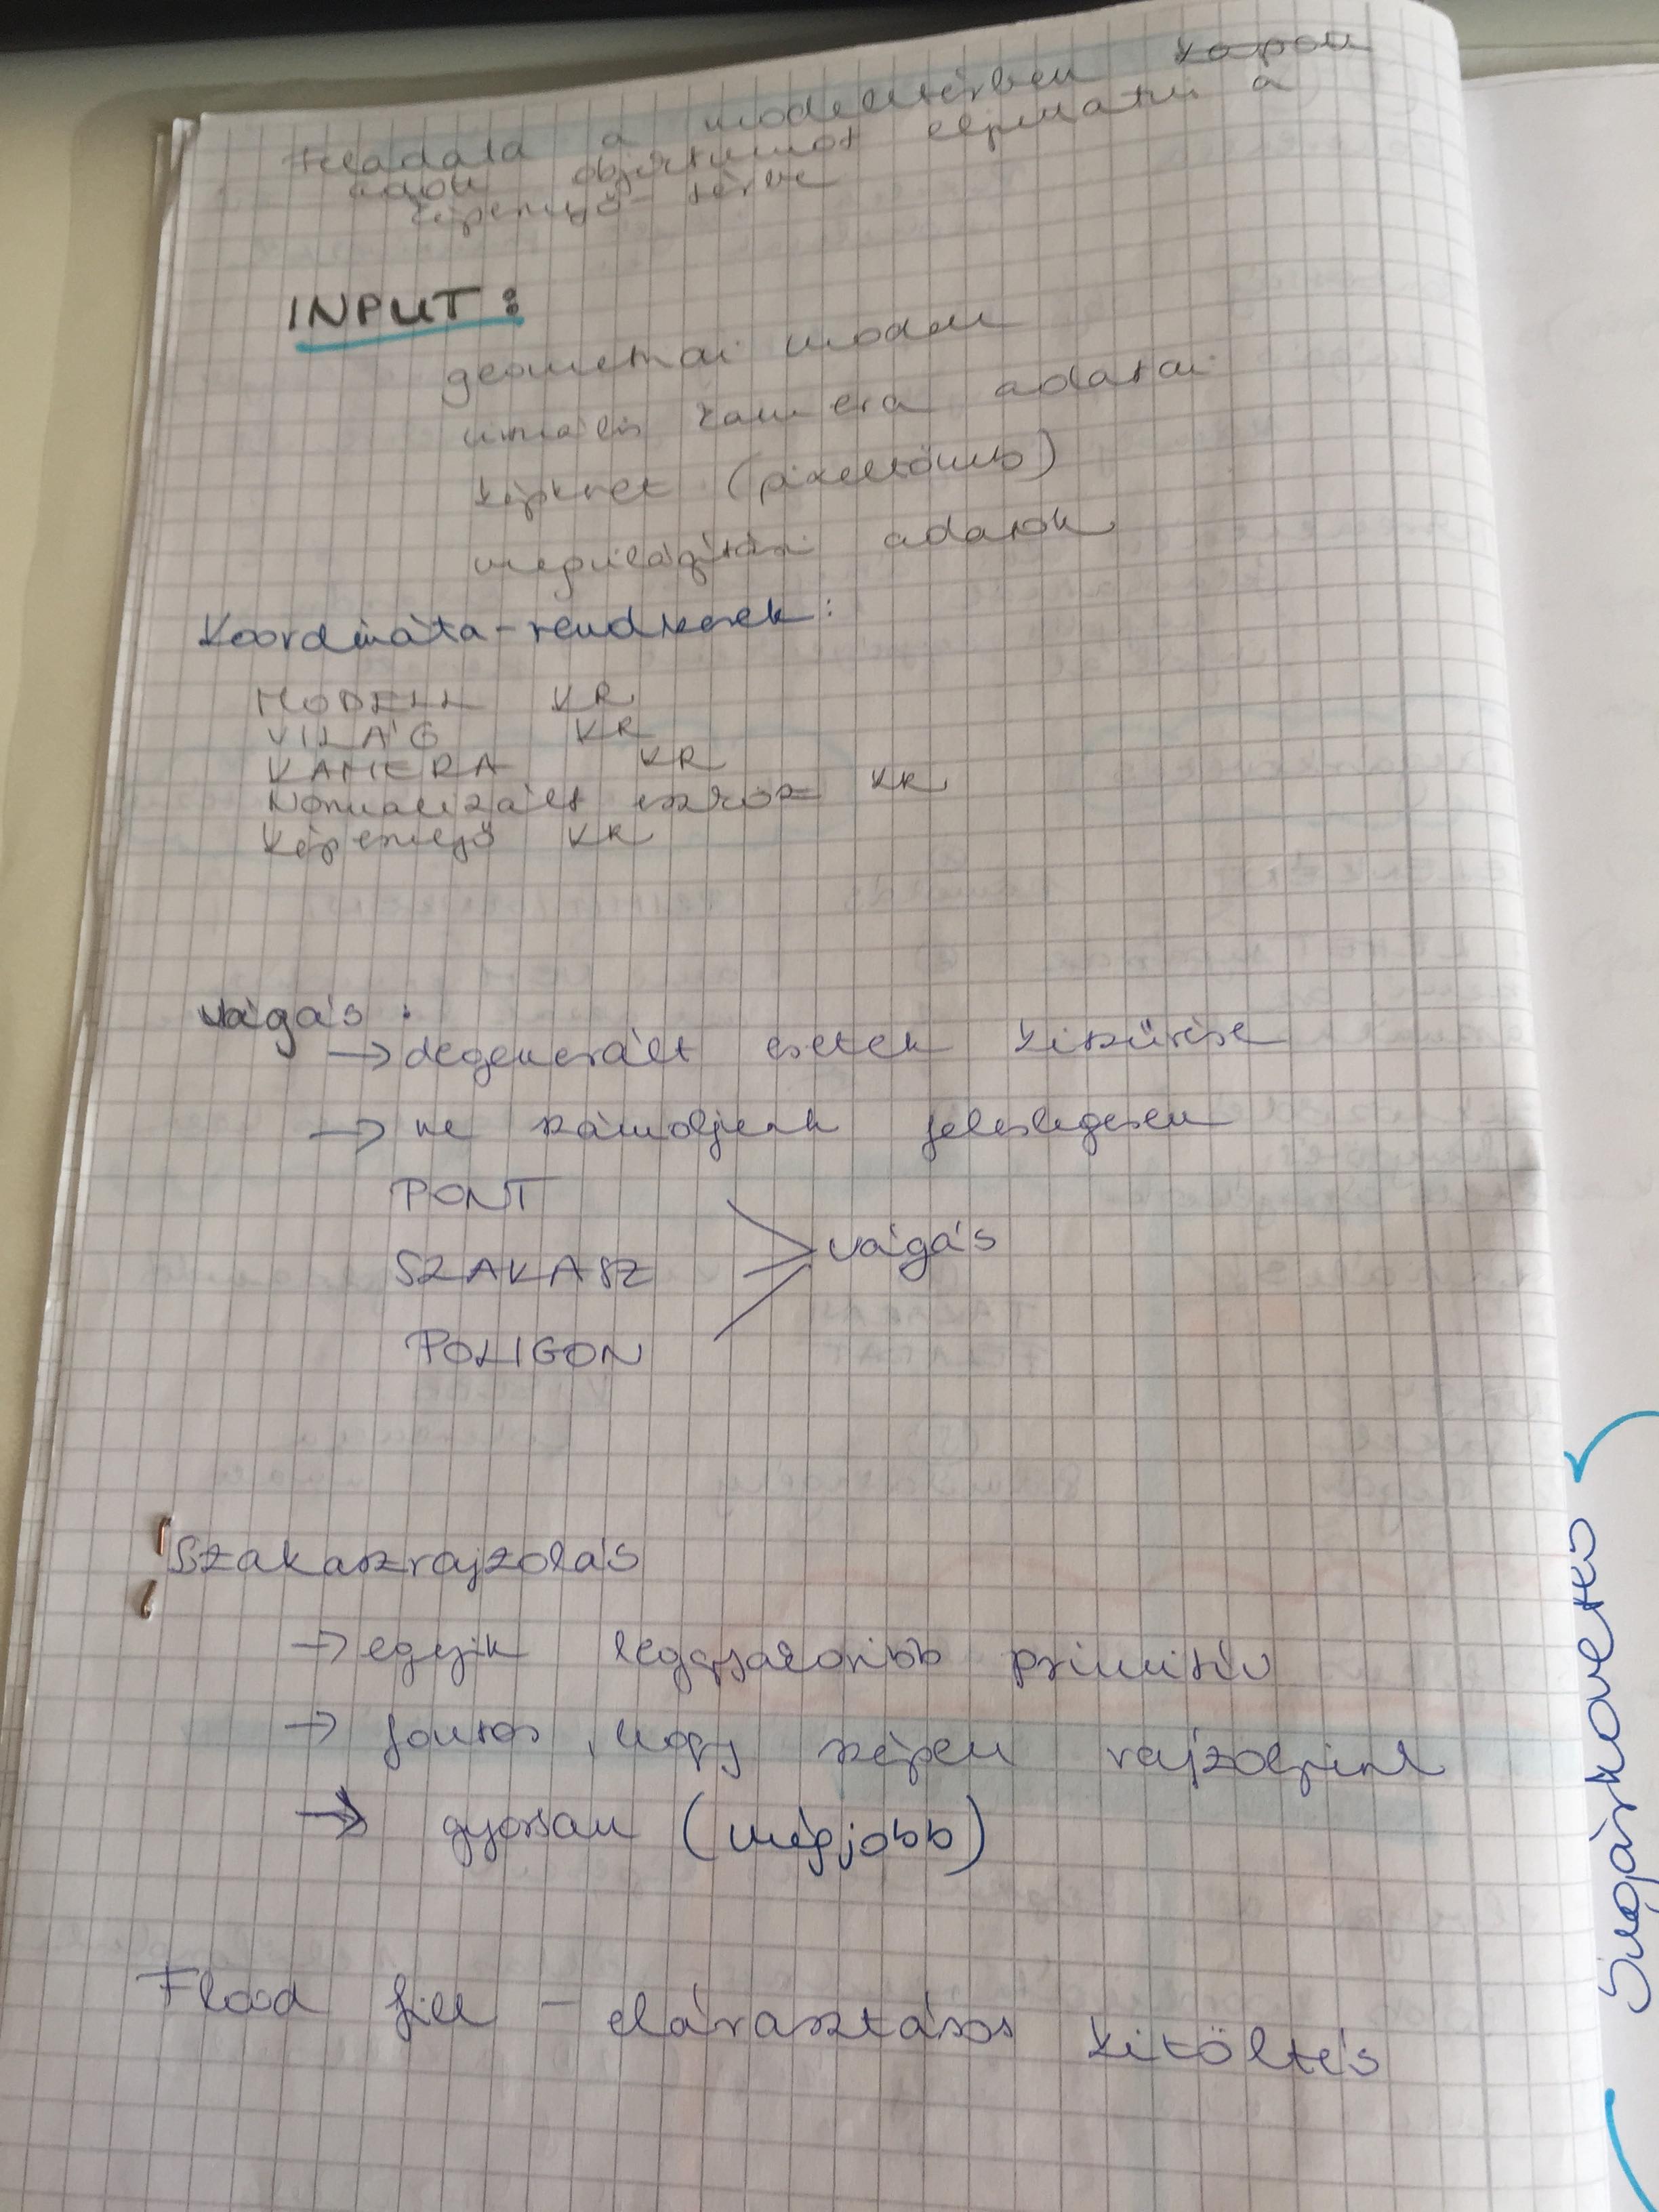 feladata a modelltérben kapott
adott objektumot eljuttatni a
képernyő-térbe
INPUT:
geometriai modell
virtuális kamera adatai
képkeret (pixeltömb)
megvilágítási adatok
Koordináta-rendszerek:
MODELL KR
VILÁG KR
KAMERA KR
Normalizált eszköz KR
Képernyő KR
vágás:
→ degenerált esetek kiszűrése
→ ne számoljunk feleslegesen
PONT
SZAKASZ
vágás
POLIGON
Szakaszrajzolás
→ egyik leggyakoribb primitív
→ fontos, hogy szépen rajzoljunk
→ gyorsan (mégjobb)
Flood fill - elárasztásos kitöltés
Sugárkövetés